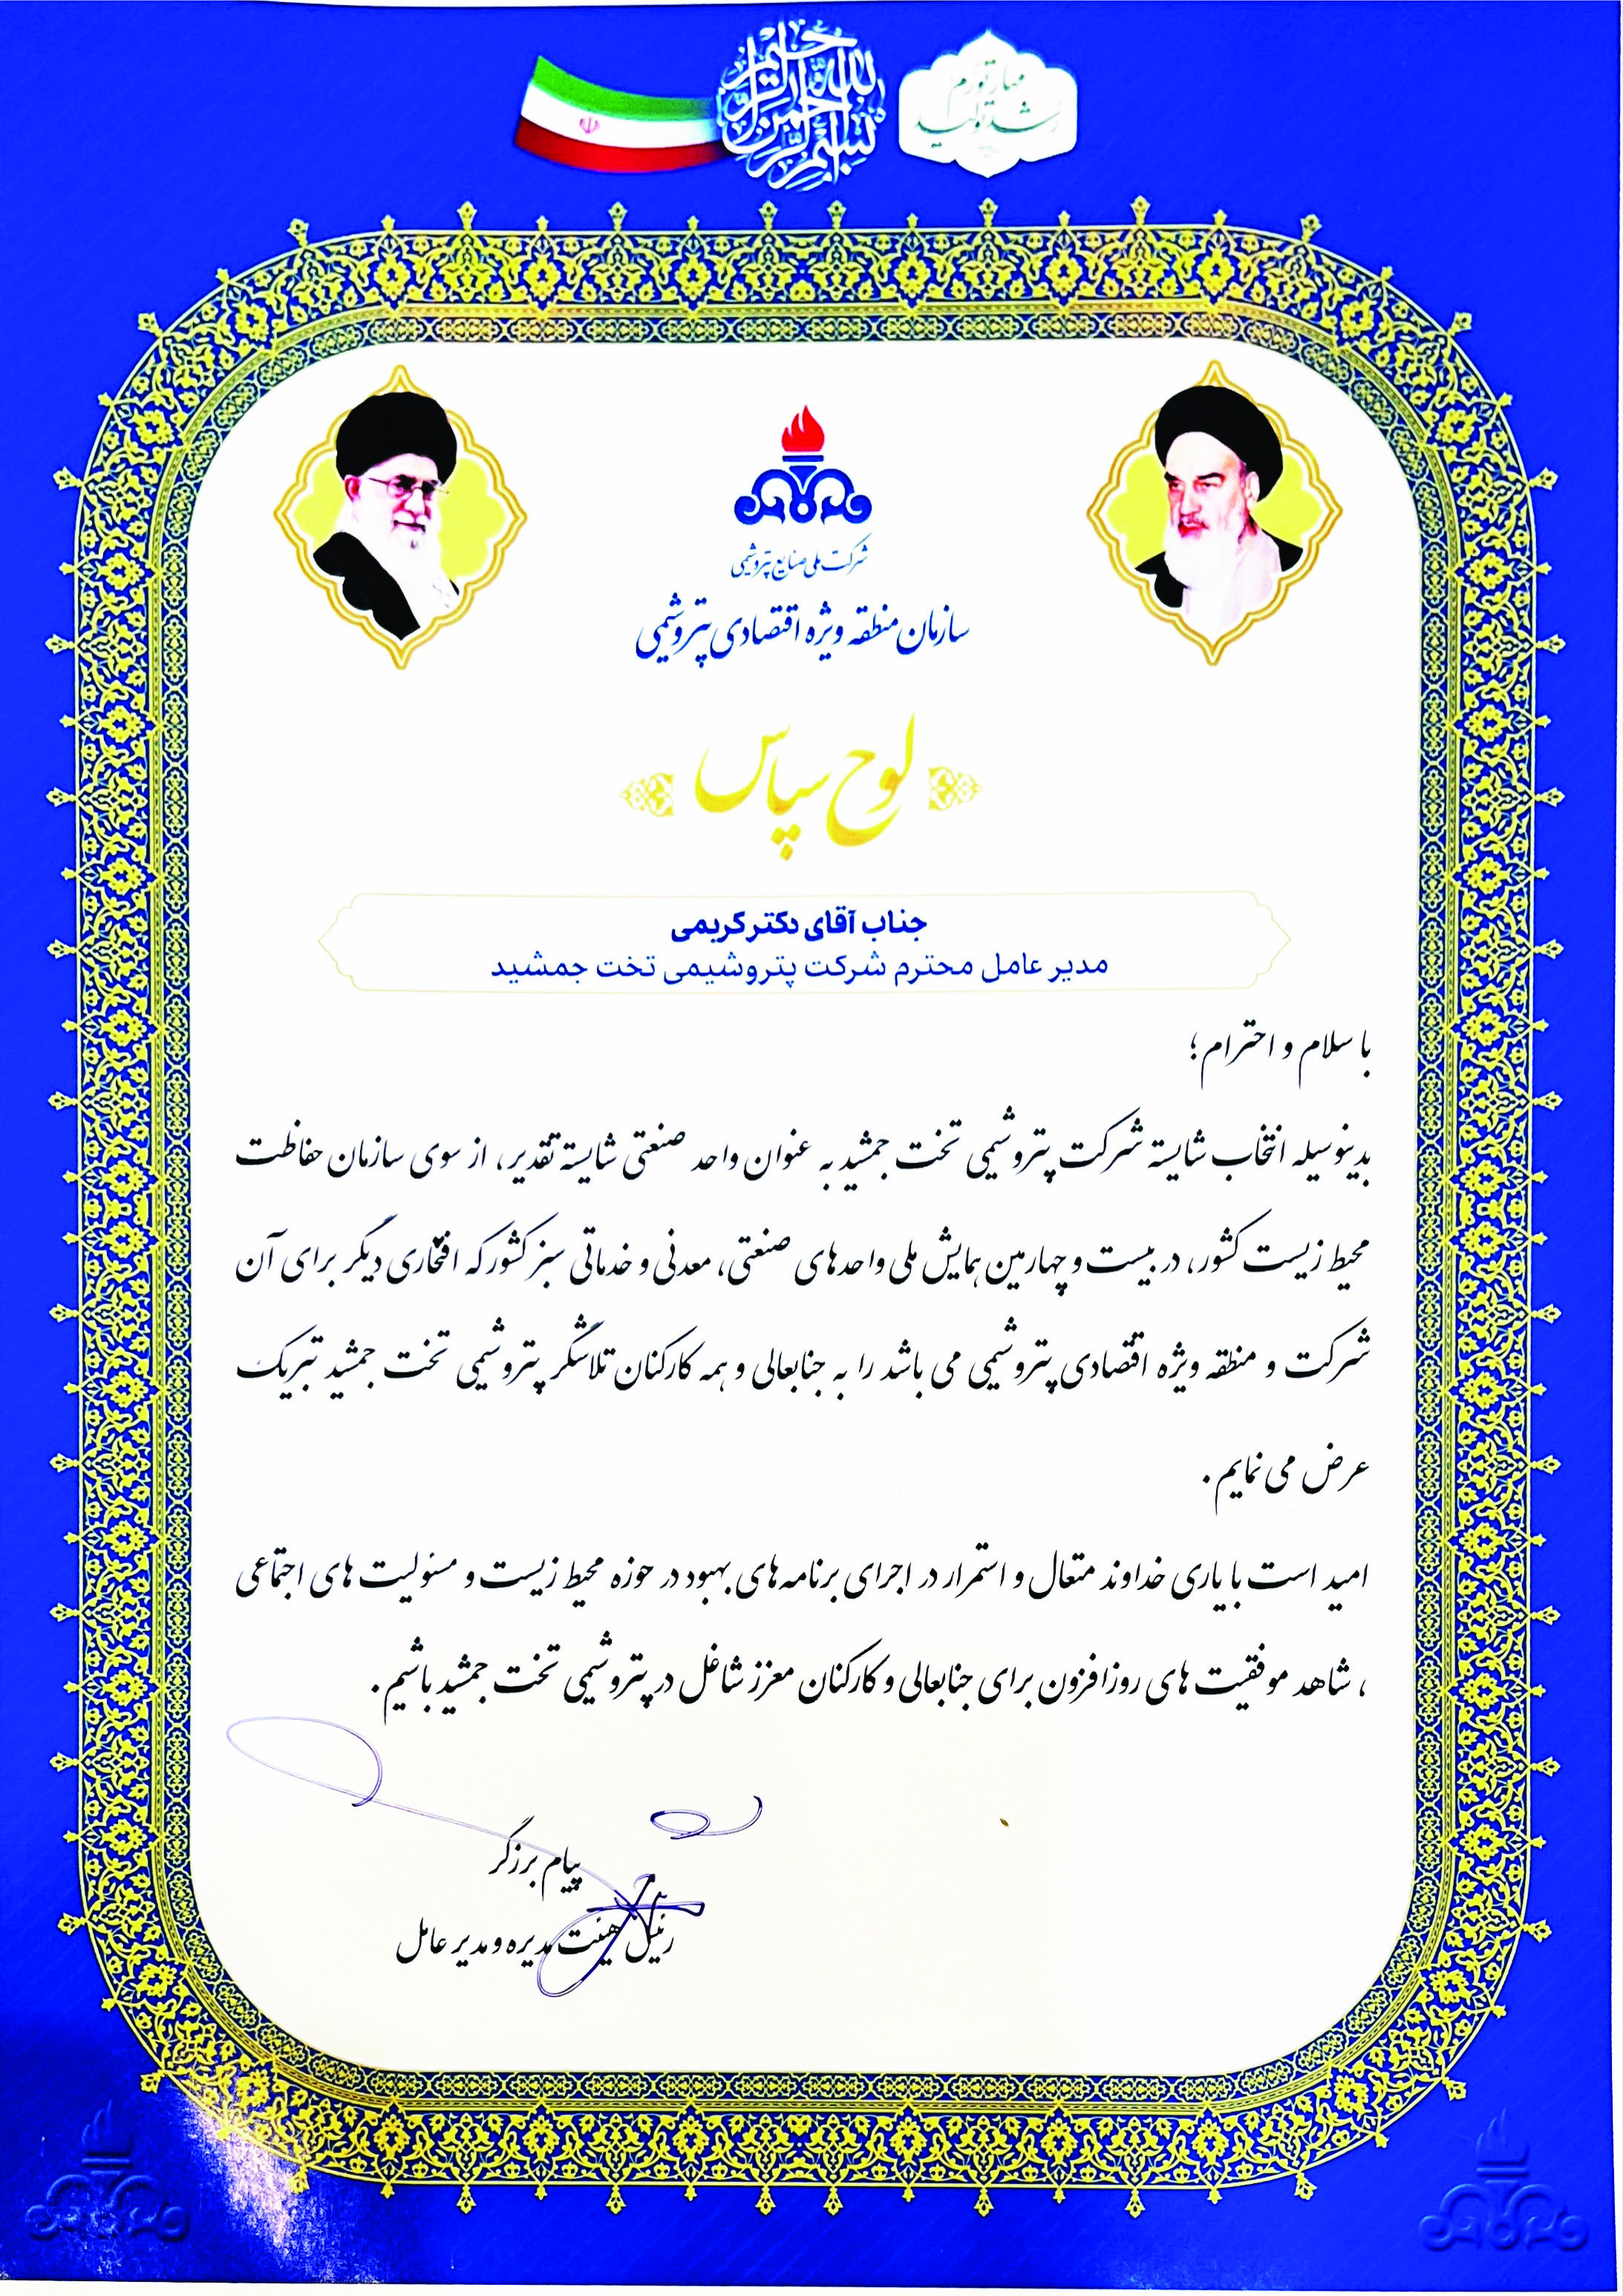 بسم الله الرحمن الرحیم
مهار تورم
رشد تولید
شرکت ملی صنایع پتروشیمی
سازمان منطقه ویژه اقتصادی پتروشیمی
لوح سپاس
جناب آقای دکتر کریمی
مدیر عامل محترم شرکت پتروشیمی تخت جمشید
با سلام و احترام؛
بدینوسیله انتخاب شایسته شرکت پتروشیمی تخت جمشید به عنوان واحد صنعتی شایسته تقدیر، از سوی سازمان حفاظت
محیط زیست کشور، در بیست و چهارمین همایش ملی واحدهای صنعتی، معدنی و خدماتی سبز کشور که افتخاری دیگر برای آن
شرکت و منطقه ویژه اقتصادی پتروشیمی می باشد را به جنابعالی و همه کارکنان تلاشگر پتروشیمی تخت جمشید تبریک
عرض می نمایم.
امید است با یاری خداوند متعال و استمرار در اجرای برنامه های بهبود در حوزه محیط زیست و مسئولیت های اجتماعی
، شاهد موفقیت های روزافزون برای جنابعالی و کارکنان معزز شاغل در پتروشیمی تخت جمشید باشیم.
پیام برزگر
رئیس هیئت مدیره و مدیر عامل